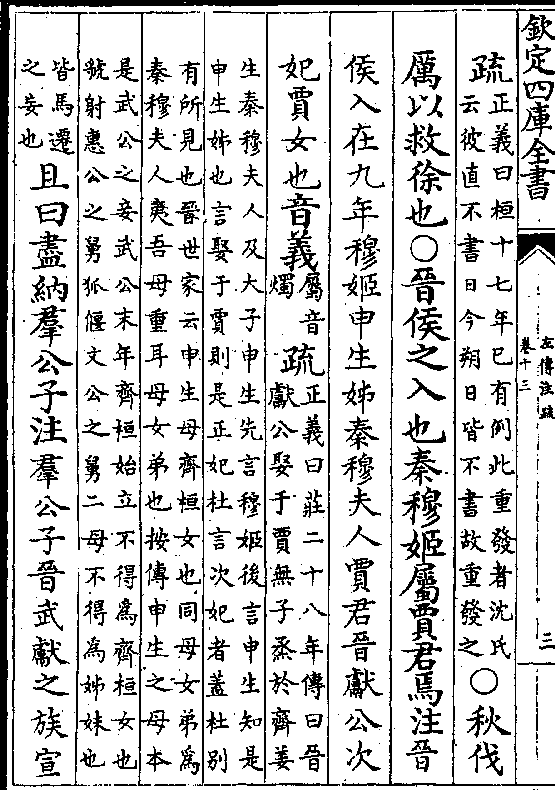 欽定四庫全書
左傳注疏
卷十三
三
疏正義曰桓十七年已有例此重發者沈氏云彼直不書日今朔日皆不書故重發之○秋伐
厲以救徐也○晉侯之入也秦穆姬屬賈君焉注晉
侯入在九年穆姬申生姊秦穆夫人賈君晉獻公次
妃賈女也音義屬音燭疏正義曰莊二十八年傳曰晉獻公娶于賈無子烝於齊姜
生秦穆夫人及大子申生先言穆姬後言申生知是申生姊也言娶于賈則是正妃杜言次妃者蓋杜別
有所見也晉世家云申生母齊桓女也同母女弟為秦穆夫人夷吾母重耳母女弟也按傳申生之母本
是武公之妾武公末年齊桓始立不得為齊桓女也虢射惠公之舅狐偃文公之舅二母不得為姊妹也
皆馬遷之妄也且曰盡納羣公子注羣公子晉武獻之族宣